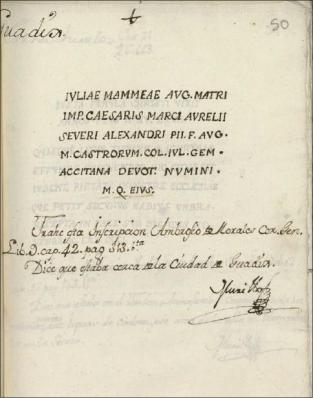 50
Guadix
IVLIAE MAMMEAE AVG. MATRI
IMP. CAESARIS MARCI AVRELII
SEVERI ALEXANDRI PII. F. AVG.
M. CASTRORVM. COL. IVL. GEM.
ACCITANA DEVOT. NVMINI.
M. Q. EIVS.
Trahe esta Inscripcion Ambrosio de Morales Cor. Gen.
Lib. 9. cap. 42. pag 313.
Dice que estaba cerca de la Ciudad de Guadix.